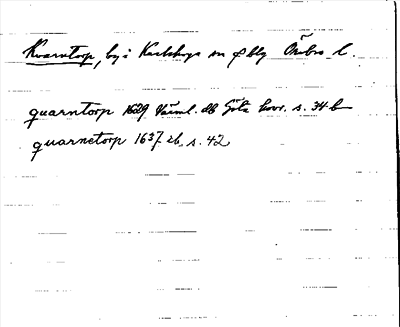 Kvarntorp, by i Karlskoga sn o bbg Örebro l.
quarntorp 1629 Värml. db Göta hovr. s. 34 b
quarnetorp 1637 ib. s. 42